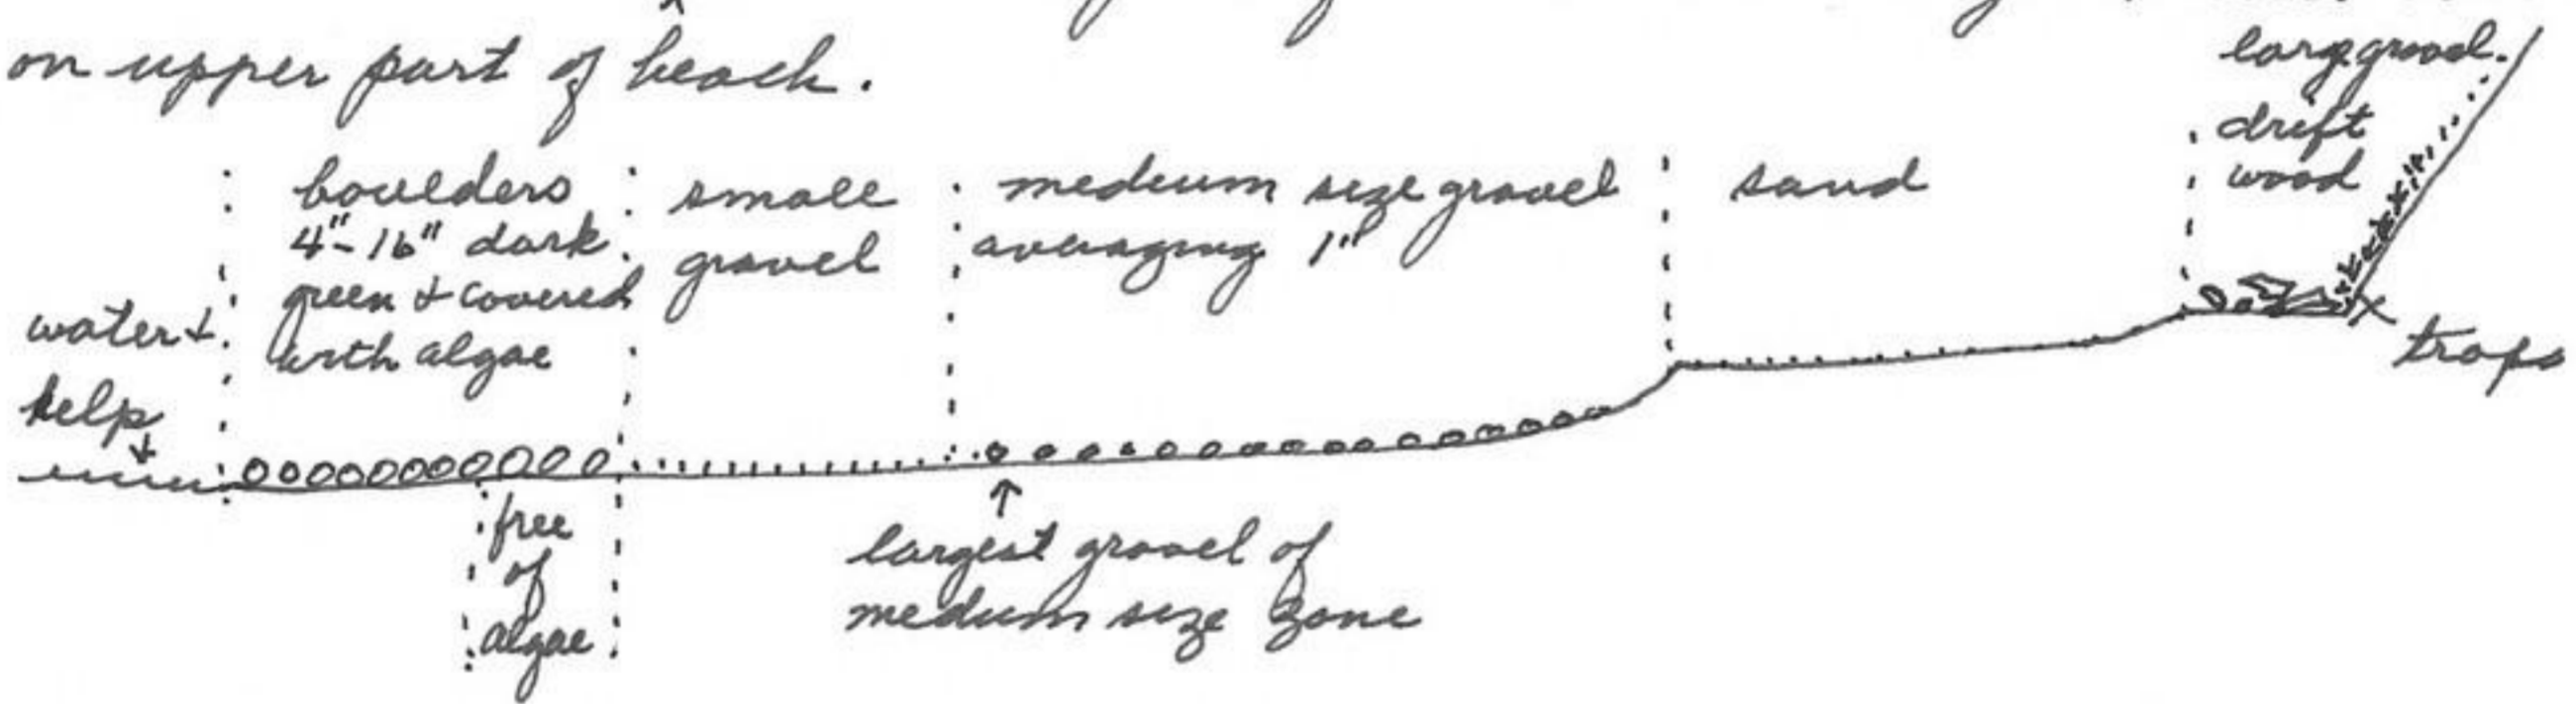 on upper part of beach.
large gravel.
drift
wood
boulders
4"-16" dark
green & covered
with algae
small
gravel
medium size gravel
averaging 1"
sand
water &
kelp
traps
free
of
algae
largest gravel of
medium size zone